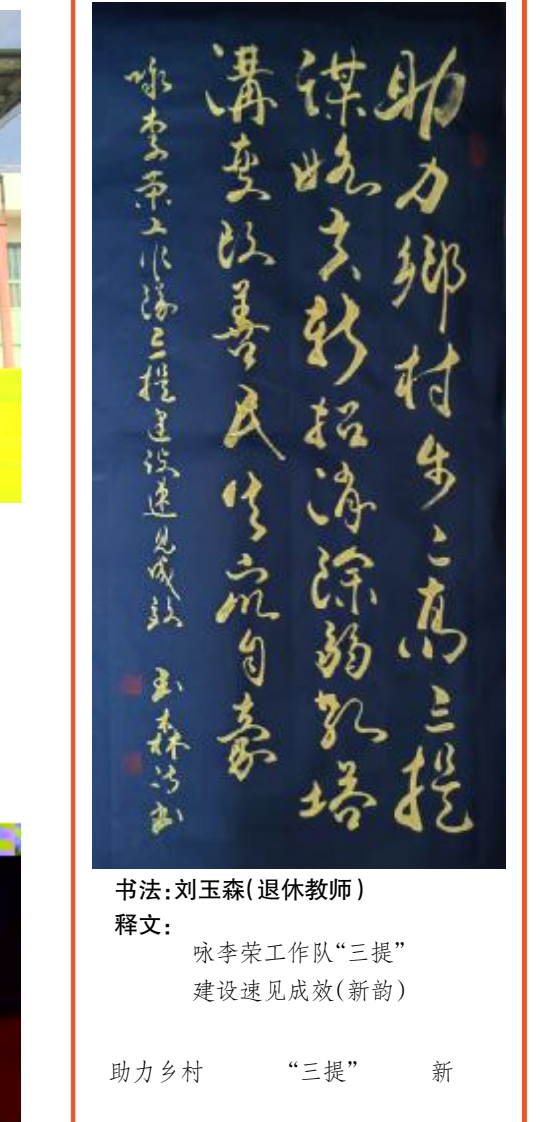 助力鄉村步〻高三提
謀略出新招消除弱塔
溝变改善民生自豪
咏李荣工作隊三提建设速见成效 玉森诗书
书法:刘玉森(退休教师)
释文:
咏李荣工作队“三提”
建设速见成效(新韵)
助力乡村 “三提” 新